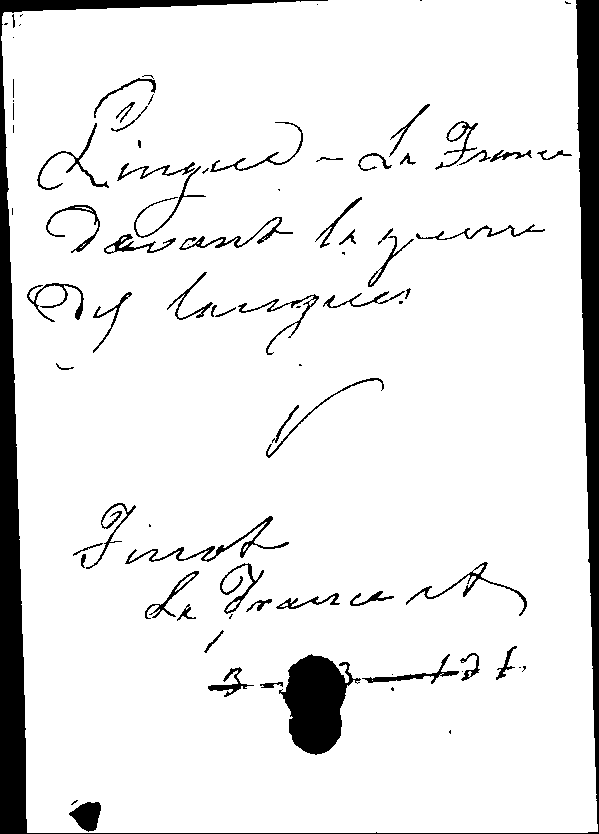 Lingue - La France
devant la guerre
des langues
Finot
La France et